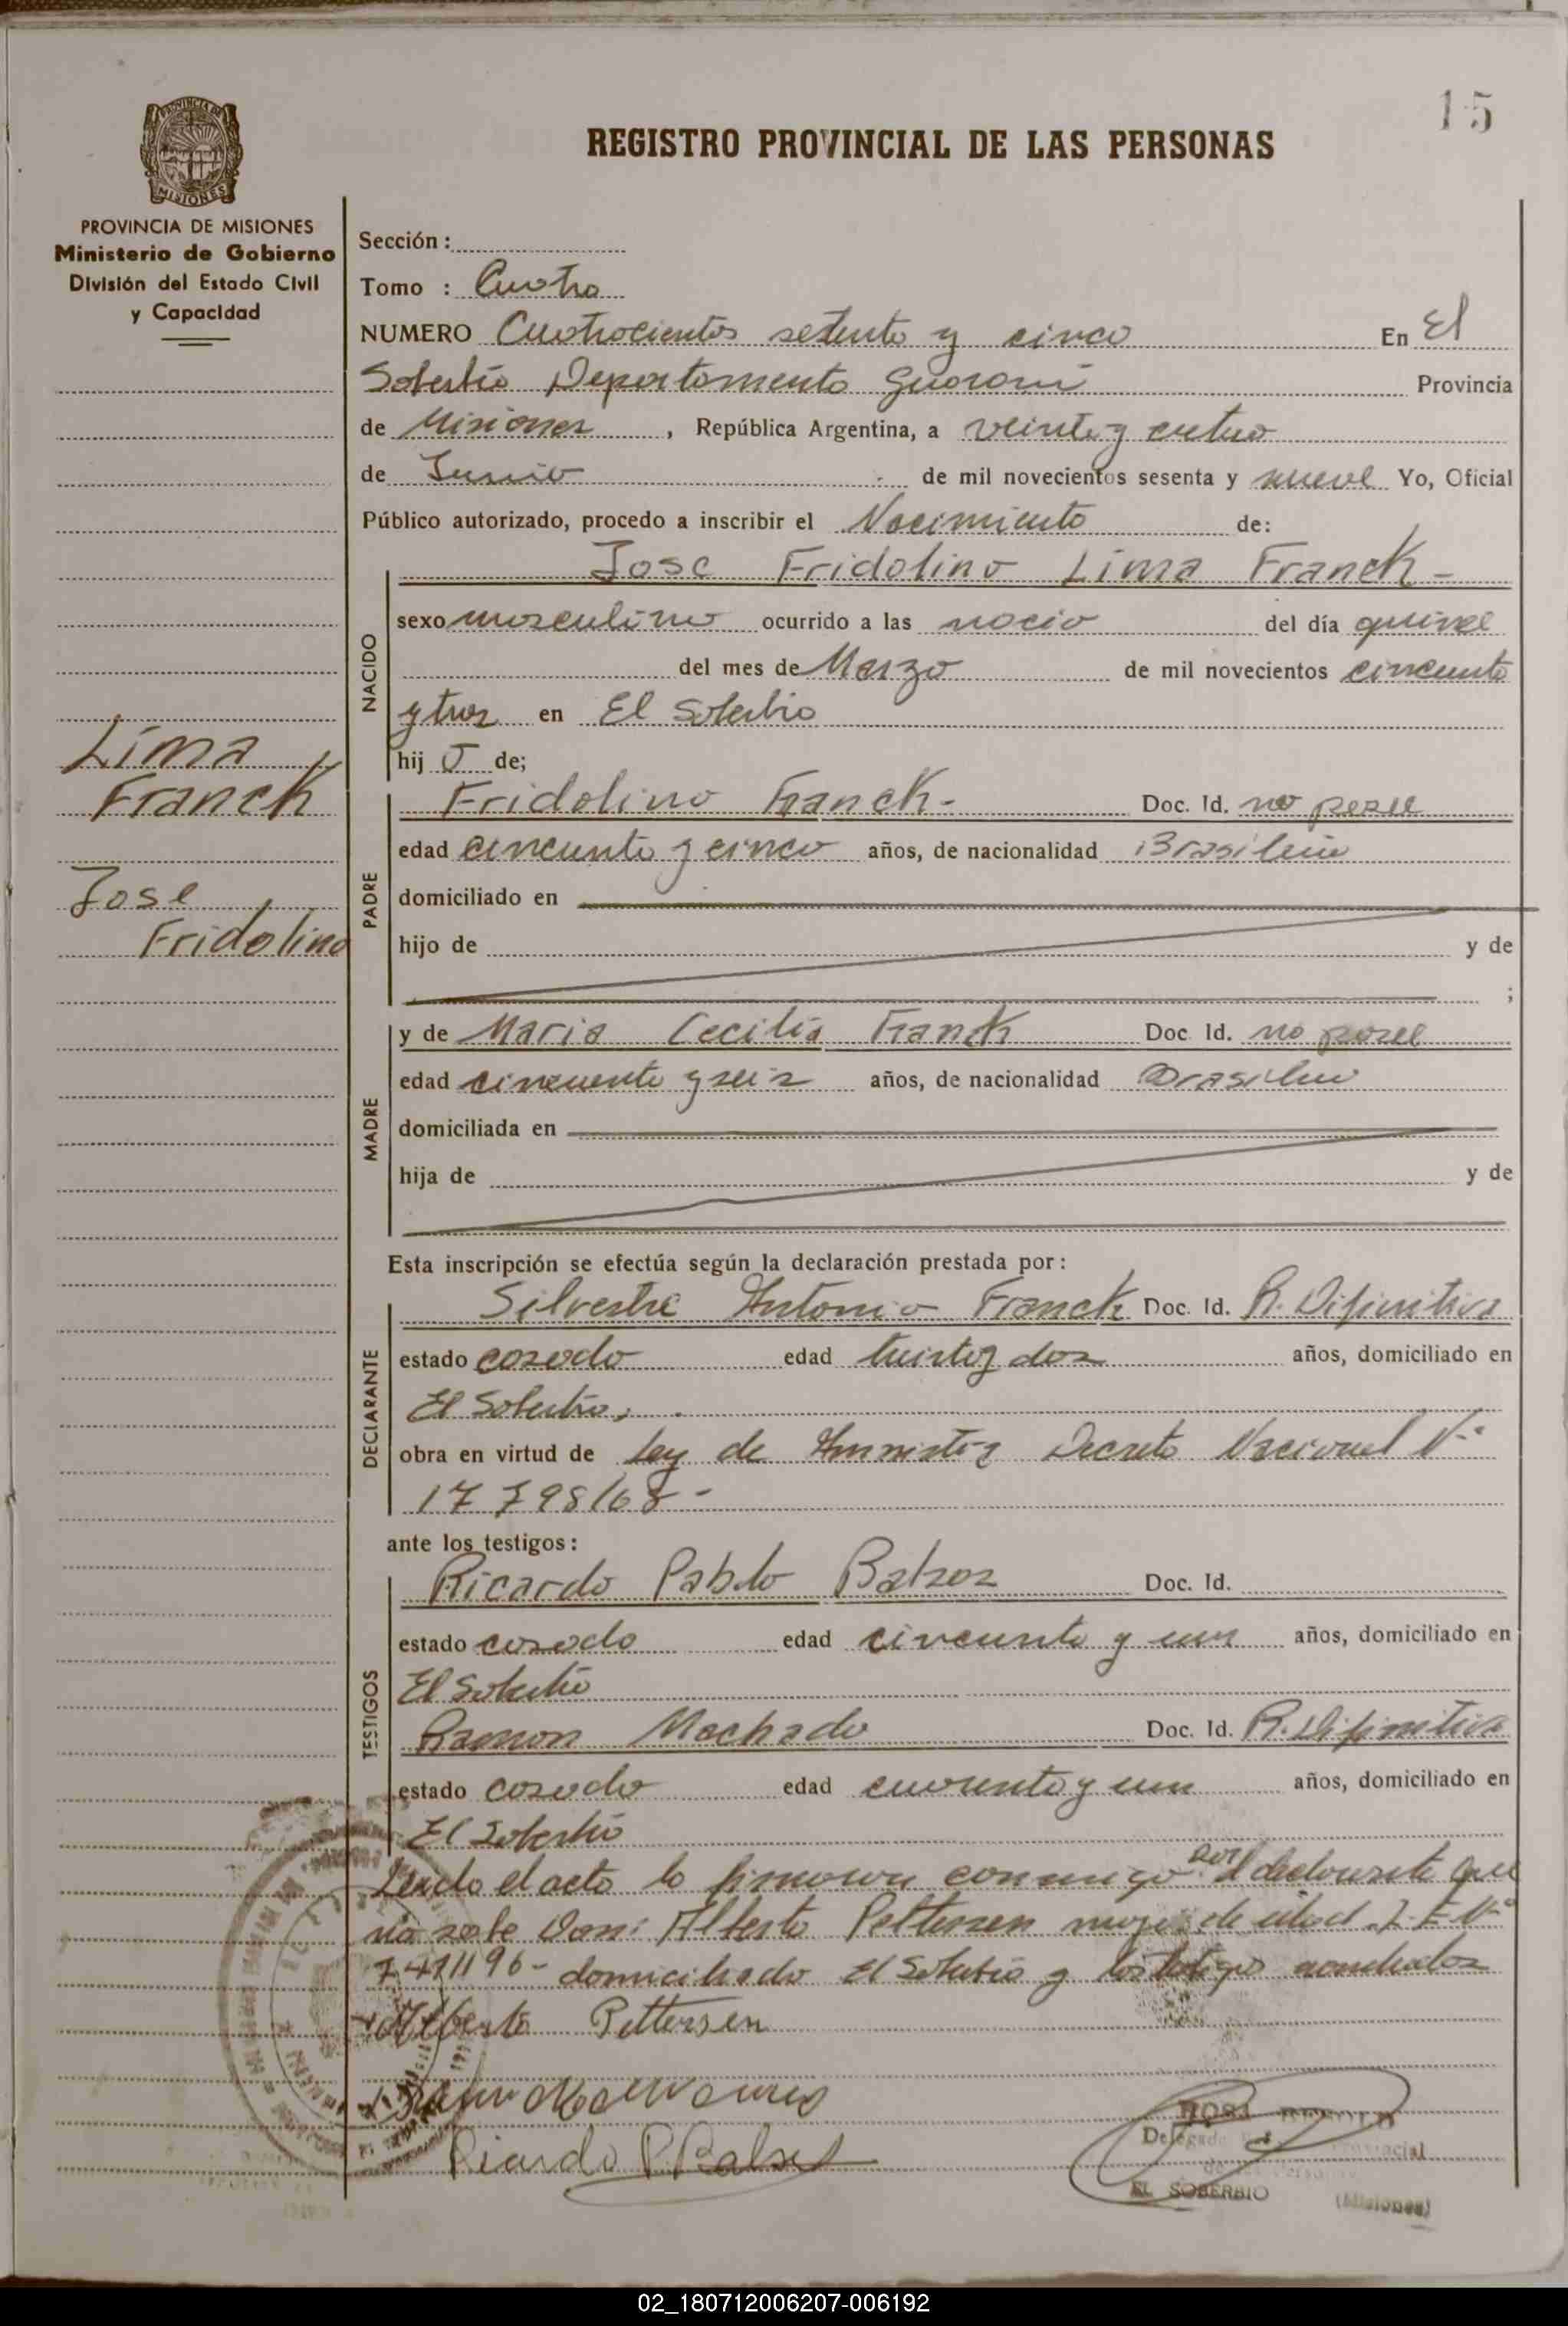 15
REGISTRO PROVINCIAL DE LAS PERSONAS
PROVINCIA DE MISIONES
Ministerio de Gobierno
División del Estado Civil
y Capacidad
Lima
Franck
Jose
Fridolino
Sección :
Tomo : Cuatro
NUMERO Cuatrocientos setenta y cinco En El
Soberbio Departamento Guaraní Provincia
de Misiones , República Argentina, a veinte y cuatro
de Junio de mil novecientos sesenta y nueve Yo, Oficial
Público autorizado, procedo a inscribir el Nacimiento de:
NACIDO
Jose Fridolino Lima Franck -
sexo masculino ocurrido a las nacio del día quince
del mes de Marzo de mil novecientos cincuenta
y tres en El Soberbio
hij o de;
PADRE
Fridolino Franck - Doc. Id. no posee
edad cincuenta y cinco años, de nacionalidad Brasilera
domiciliado en
hijo de y de
;
MADRE
y de Maria Cecilia Franck Doc. Id. no posee
edad cincuenta y seis años, de nacionalidad
domiciliada en
hija de y de
Esta inscripción se efectúa según la declaración prestada por :
DECLARANTE
Silvestre Antonio Franck Doc. Id. R. Difinitiva
estado casado edad treinta y dos años, domiciliado en
El Soberbio,
obra en virtud de Ley de Amnistia Decreto Nacional Nº
17798/68 -
ante los testigos :
TESTIGOS
Ricardo Pablo Doc. Id.
estado casado edad cincuenta y un años, domiciliado en
El Soberbio
Ramon Machado Doc. Id. R. Difinitiva
estado casado edad cuarenta y un años, domiciliado en
El Soberbio
Leida el acta la firmaron conmigo por el declarante que
no sabe Don: Alberto Pettersen mayor de edad L. E. Nº
domiciliado El Soberbio y los testigos nombrados
Alberto Pettersen
Ricardo P.
Delegado
EL SOBERBIO (Misiones)
02_180712006207-006192